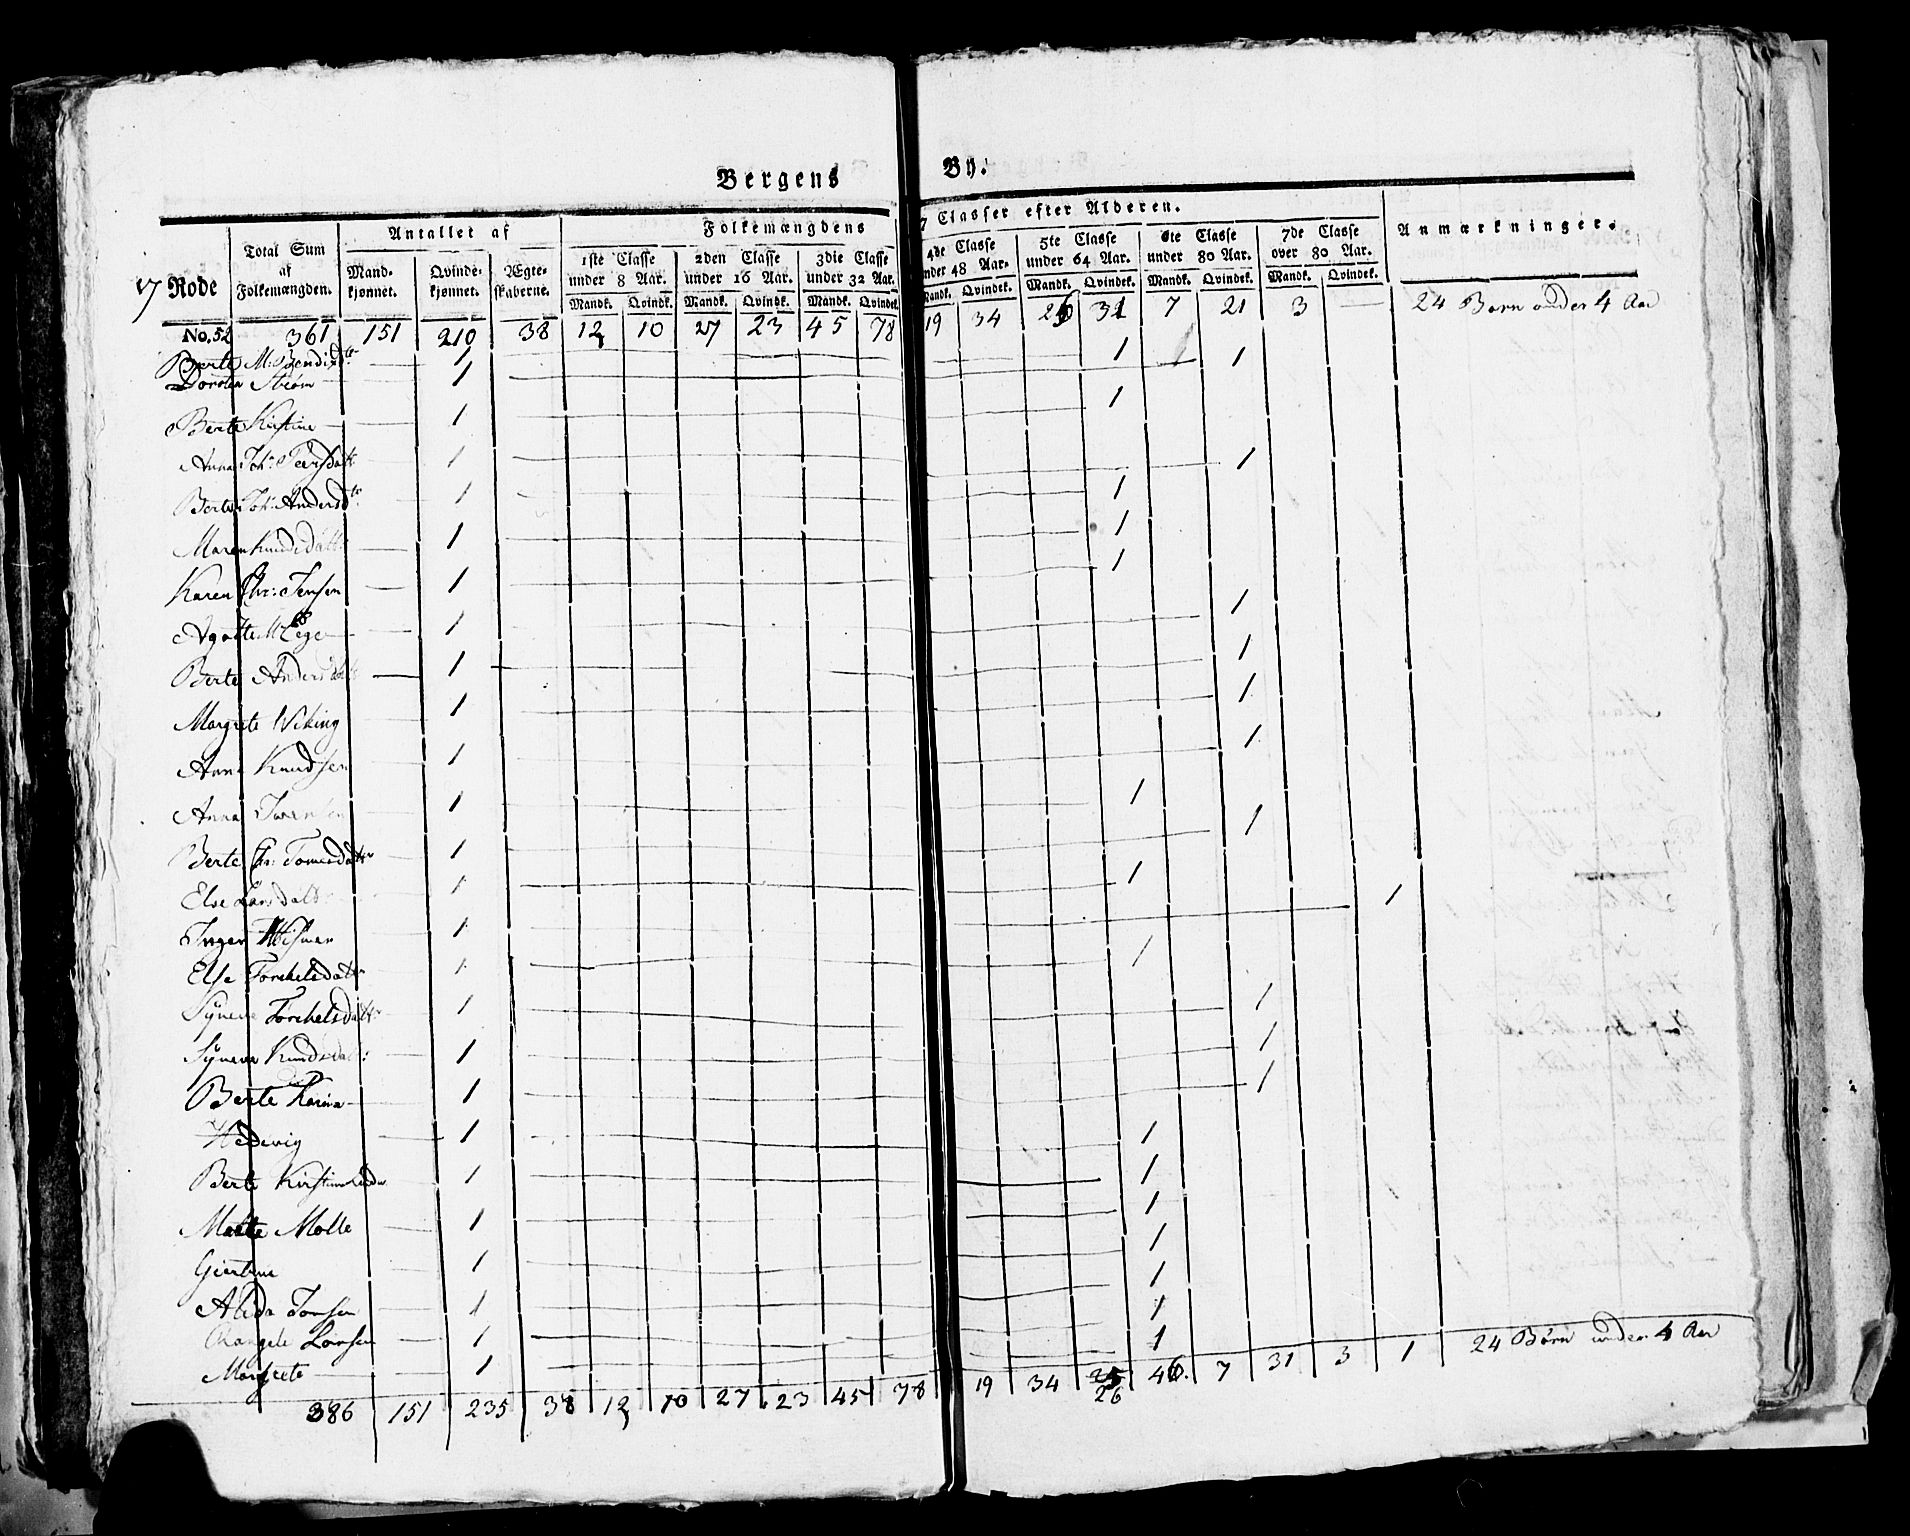 Bergens By.
17 Rode
Total Sum af Folkemængden.
Antallet af
Mandkjønnet. Qvindekjønnet. Ægteskaberne.
Folkemængdens 7 Classer efter Alderen.
1ste Classe under 8 Aar. 2den Classe under 16 Aar. 3die Classe under 32 Aar. 4de Classe under 48 Aar. 5te Classe under 64 Aar. 6te Classe under 80 Aar. 7de Classe over 80 Aar.
Mandk. Qvindek. Mandk. Qvindek. Mandk. Qvindek. Mandk. Qvindek. Mandk. Qvindek. Mandk. Qvindek. Mandk. Qvindek.
Anmærkninger.
No. 52 361 151 210 38 12 10 27 23 45 78 19 34 26 31 7 21 3 — 24 Børn under 4 Aar
Berte M: Bendixdtr — 1 1
Dorotea Strøm — 1 1
Berte Kirstine — 1 1
Anna Joh: Peersdatt — 1 1
Berte Joh: Andersdtr 1 1
Maren Knudsdatt — 1 1
Karen Chr: Jensen — 1 1
Agatte M — 1 1
Berte Andersdatt — 1 1
Margrete Wiking 1 1
Anna Knudsen 1 1
Anna 1 1
Berte Chr: Tomesdattr 1 1
Else Larsdatt 1 1
Inger 1 1
Else Torchelsdatr 1 1
Syneve Torchelsdattr 1 1
Syneva Knudsdatt: — 1 1
Berte Karina — 1 1
Hedevig — 1 1
Berte Kirstine — 1 1
Mætte Molle — 1 1
Giertrue — 1 1
Alida Jonsen — 1 1
Larsen — 1 1
Margrete — 1 1
386 151 235 38 12 10 27 23 45 78 19 34 26 46 7 31 3 1 24 Børn under 4 Aar